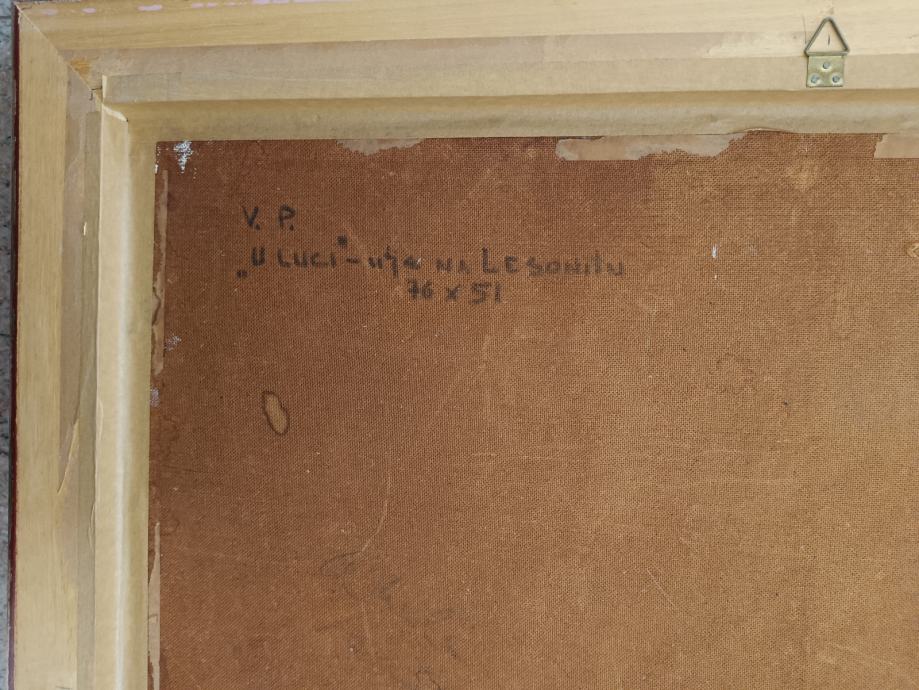 V. P.
„U LUCI" - ulje NA LESONITU
76 x 51